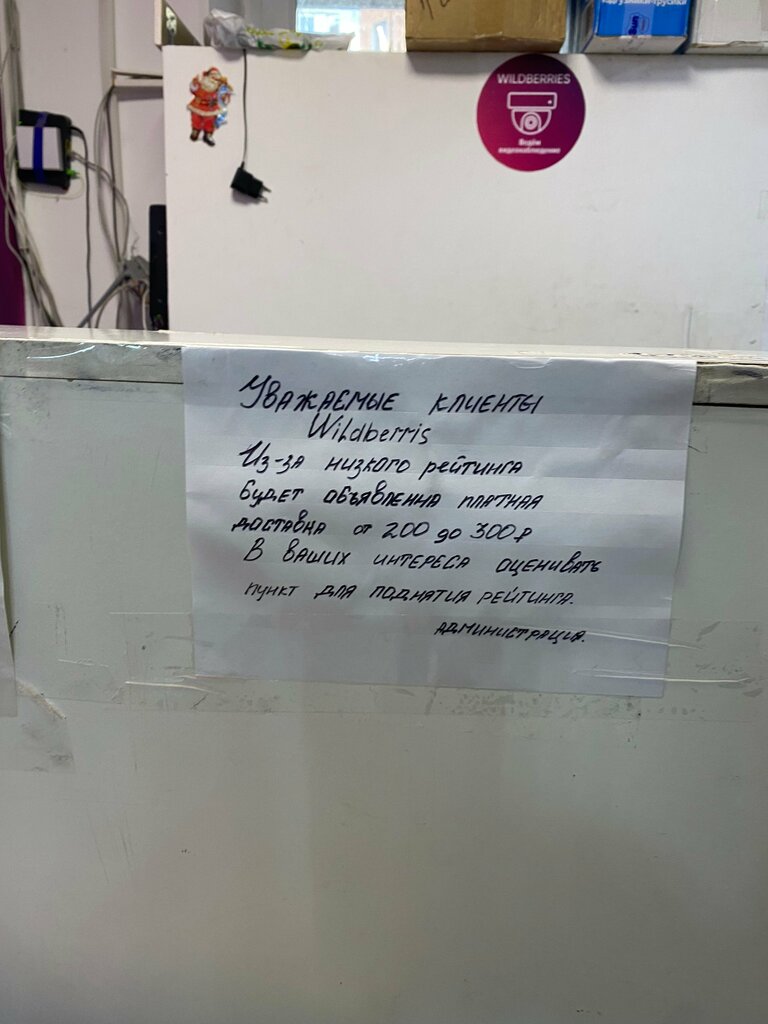 узники-трусики
Bun
WILDBERRIES
Ведём
видеонаблюдение
Уважаемые клиенты
Wildberris
Из-за низкого рейтинга
будет объявленна платная
доставка от 200 до 300₽
В ваших интереса оценивать
пункт для поднятия рейтинга.
Администрация.